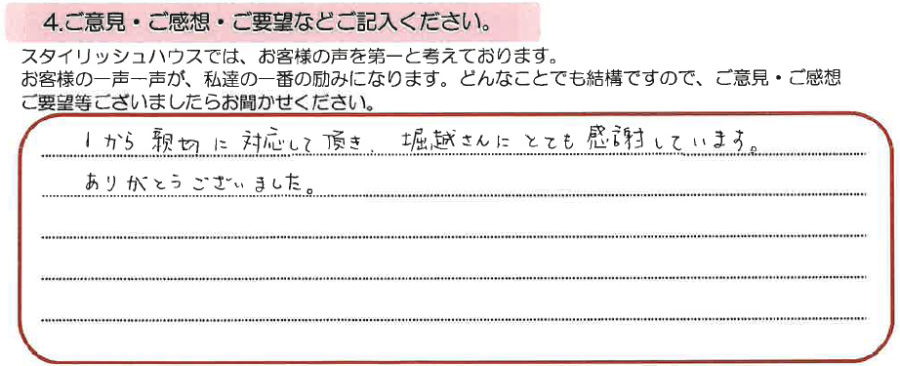 4.ご意見・ご感想・ご要望などご記入ください。
スタイリッシュハウスでは、お客様の声を第一と考えております。
お客様の一声一声が、私達の一番の励みになります。どんなことでも結構ですので、ご意見・ご感想
ご要望等ございましたらお聞かせください。
1から親切に対応して頂き、堀越さんにとても感謝しています。
ありがとうございました。